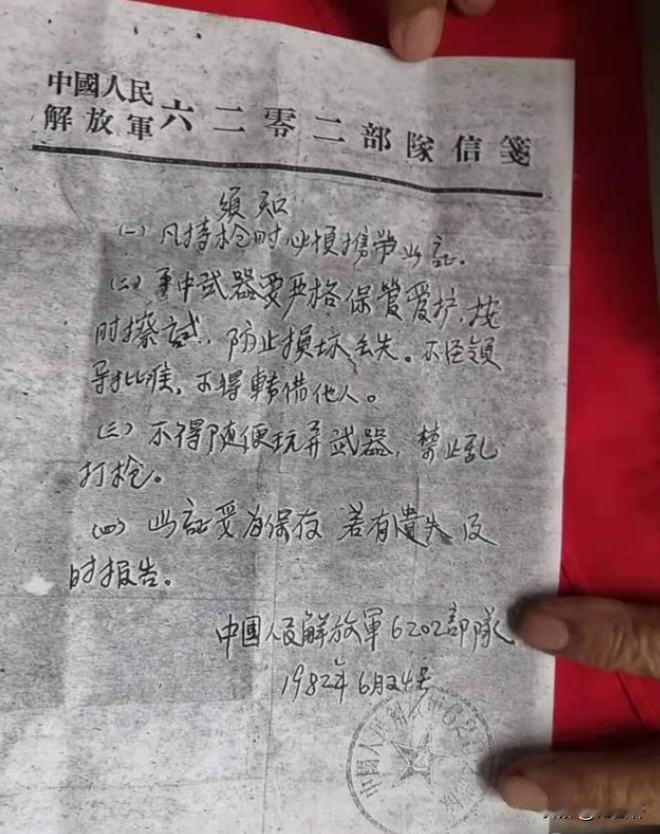 中國人民
解放軍六二零二部隊信箋
須知
(一)凡持枪时必須携带此証.
(二)軍中武器要严格保管爱护,按
时擦試,防止損坏丢失。不经領
导批准,不得轉借他人。
(三)不得随便玩弄武器,禁止乱
打枪。
(四)此証妥为保存 若有遺失及
时报告。
中國人民解放軍6202部隊
1982年6月24号
中國人民解放軍62
部隊